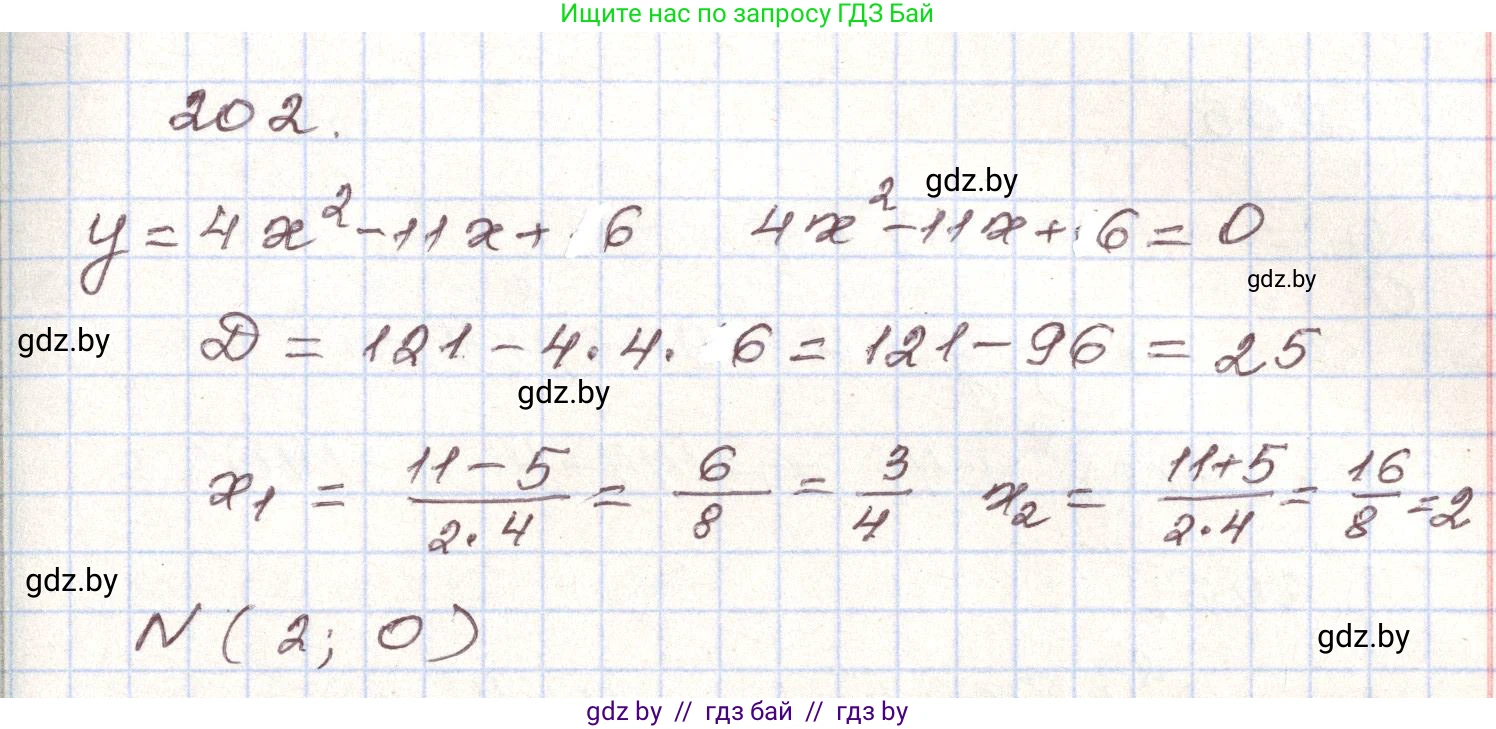 Ищите нас по запросу ГДЗ Бай
202.
y = 4x² - 11x + 6    4x² - 11x + 6 = 0
gdz.by
gdz.by
D = 121 - 4·4·6 = 121 - 96 = 25
gdz.by
gdz.by
x₁ = (11 - 5)/(2·4) = 6/8 = 3/4    x₂ = (11+5)/(2·4) = 16/8 = 2
gdz.by
N (2; 0)
gdz.by
gdz by // гдз бай // гдз by